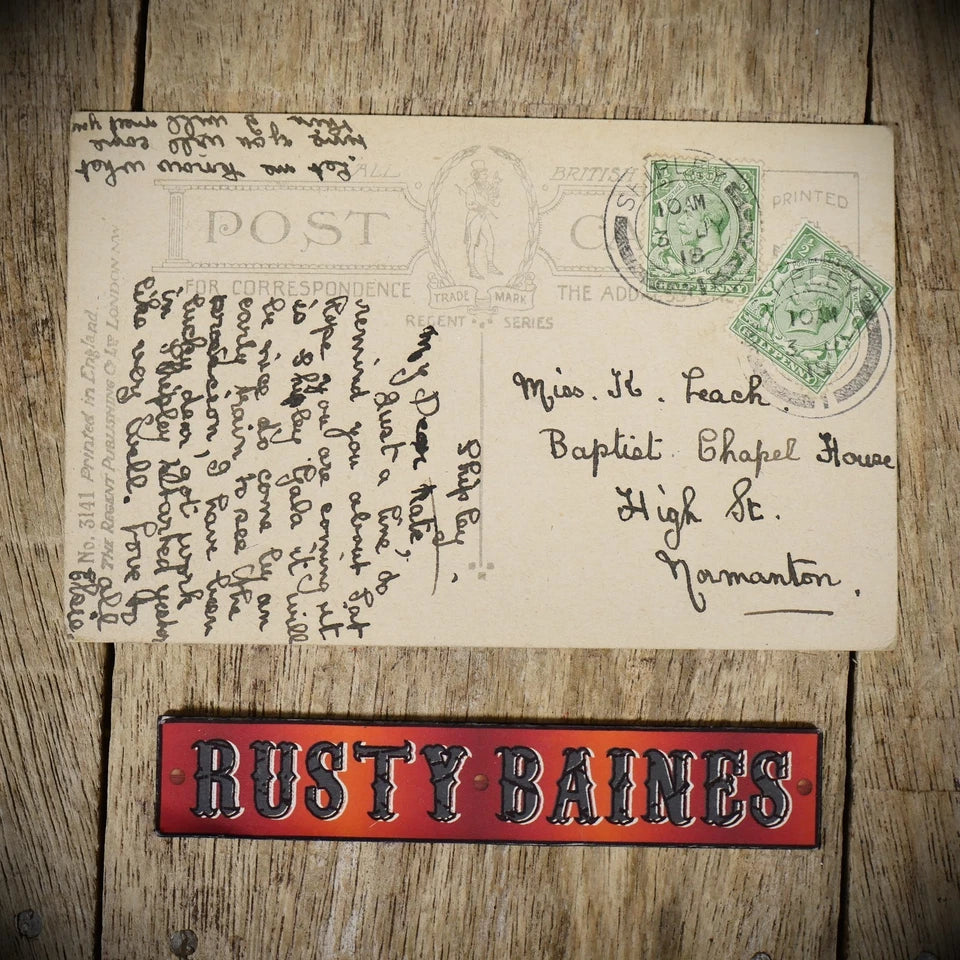 ALL BRITISH
PRINTED
POST C
FOR CORRESPONDENCE
THE ADDRESS
TRADE MARK
REGENT SERIES
SHIPLEY
10 AM
3
HALFPENNY
10 AM
3
HALFPENNY
Miss. K. Leach.
Baptist Chapel House
High St.
Normanton.
Shipley,
My Dear Kate,
Just a line to
remind you about Sat
Hope you are coming it
is Shipley Gala it will
be nice to come by an
early train to see the
procession, I have been
lucky dear, got work
in Shipley, started
like very well. love to
all
Elsie.
Let me know what
time you will come
then I will meet you
No. 3141 Printed in England.
THE REGENT PUBLISHING Co LTD LONDON NW
RUSTY BAINES